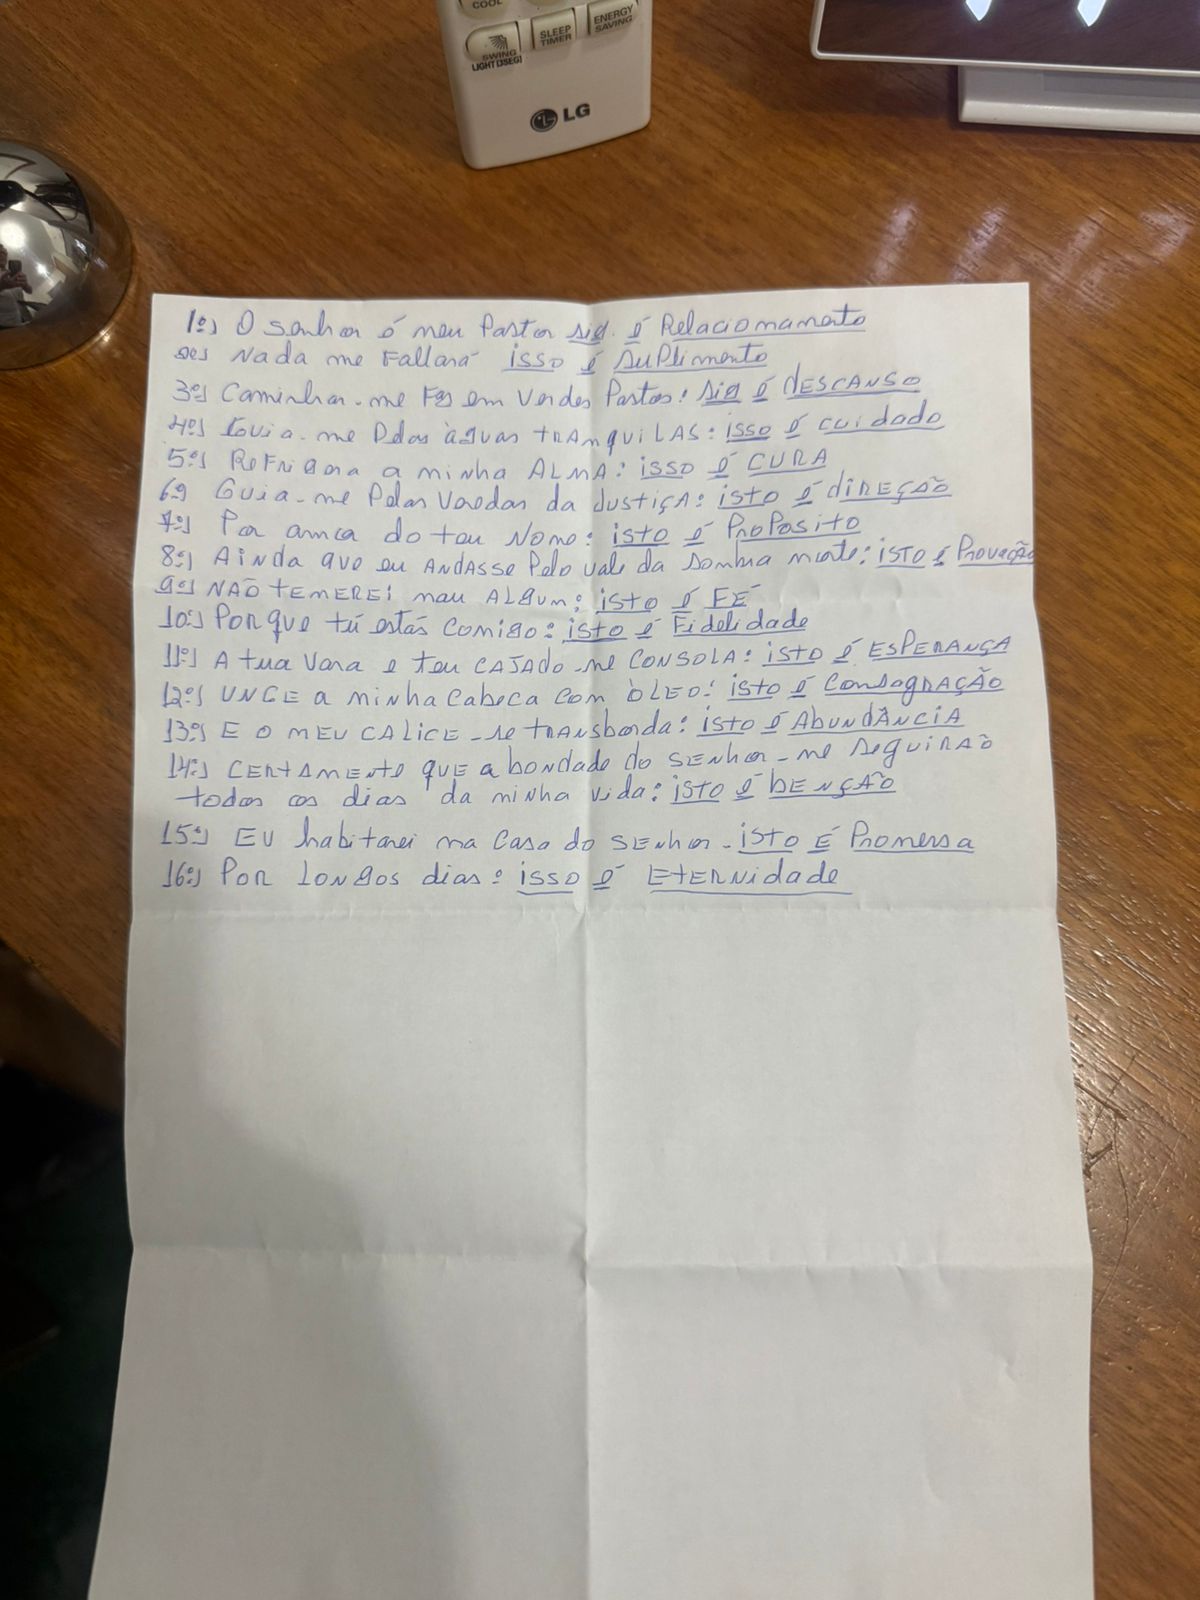 COOL
SWING
LIGHT(3SEG)
SLEEP
TIMER
ENERGY
SAVING
LG
1º) O senhor é meu Pastor sig. é Relacionamento
2º) Nada me Faltará isso é SuPlimento
3º) Caminhar-me Faz em Verdes Pastos: sig é dESCANSO
4º) Guia-me Pelas àguas TRANquILAS: isso é cuidado
5º) ReFrigera a minha ALMA: isso é CURA
6º) Guia-me Pelas Veredas da JustiçA: isto é diREÇÃO
7º) Por amor do teu Nome: isto é ProPosito
8º) AiNda que eu ANdASSE Pelo vale da sombra morte: iSTO é Provação
9º) NÃO TEMEREi mau ALgum: isto é FÉ
10º) Porque tú estás Comigo: isto é Fidelidade
11º) A tua Vara e teu CAJADO-me CONSOLA: isto é ESPERANÇA
12º) UNGE a minha Cabeca com ÒLEO: isto é ConsagRAÇÃO
13º) E O MEU CALICE-se tRANSborda: isto é AbuNdÂNCIA
14º) CERtAMENte que a bondade do SENhor-me seguiRÃO
todos os dias da minha vida: isto é bENÇÃO
15º) EU habitarei na Casa do SENhor-isto É Promessa
16º) POR LONgOS dias: isso é ETERNidade